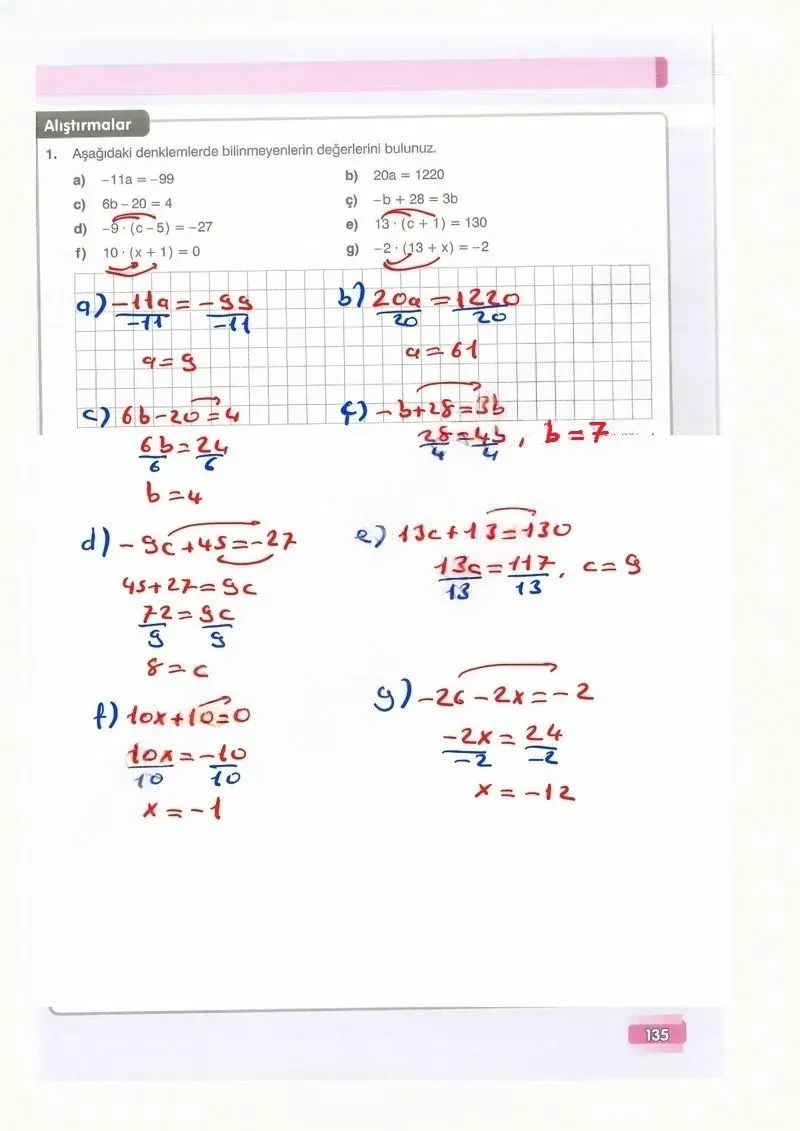 Alıştırmalar
1. Aşağıdaki denklemlerde bilinmeyenlerin değerlerini bulunuz.
a) –11a = –99
b) 20a = 1220
c) 6b – 20 = 4
ç) –b + 28 = 3b
d) –9 · (c – 5) = –27
e) 13 · (c + 1) = 130
f) 10 · (x + 1) = 0
g) –2 · (13 + x) = –2
a) -11a = -99
-11 -11
a = 9
b) 20a = 1220
20 20
a = 61
c) 6b - 20 = 4
6b = 24
6 6
b = 4
ç) -b + 28 = 3b
28 = 4b, b = 7
4 4
d) -9c + 45 = -27
45 + 27 = 9c
72 = 9c
9 9
8 = c
e) 13c + 13 = 130
13c = 117, c = 9
13 13
f) 10x + 10 = 0
10x = -10
10 10
x = -1
g) -26 - 2x = -2
-2x = 24
-2 -2
x = -12
135